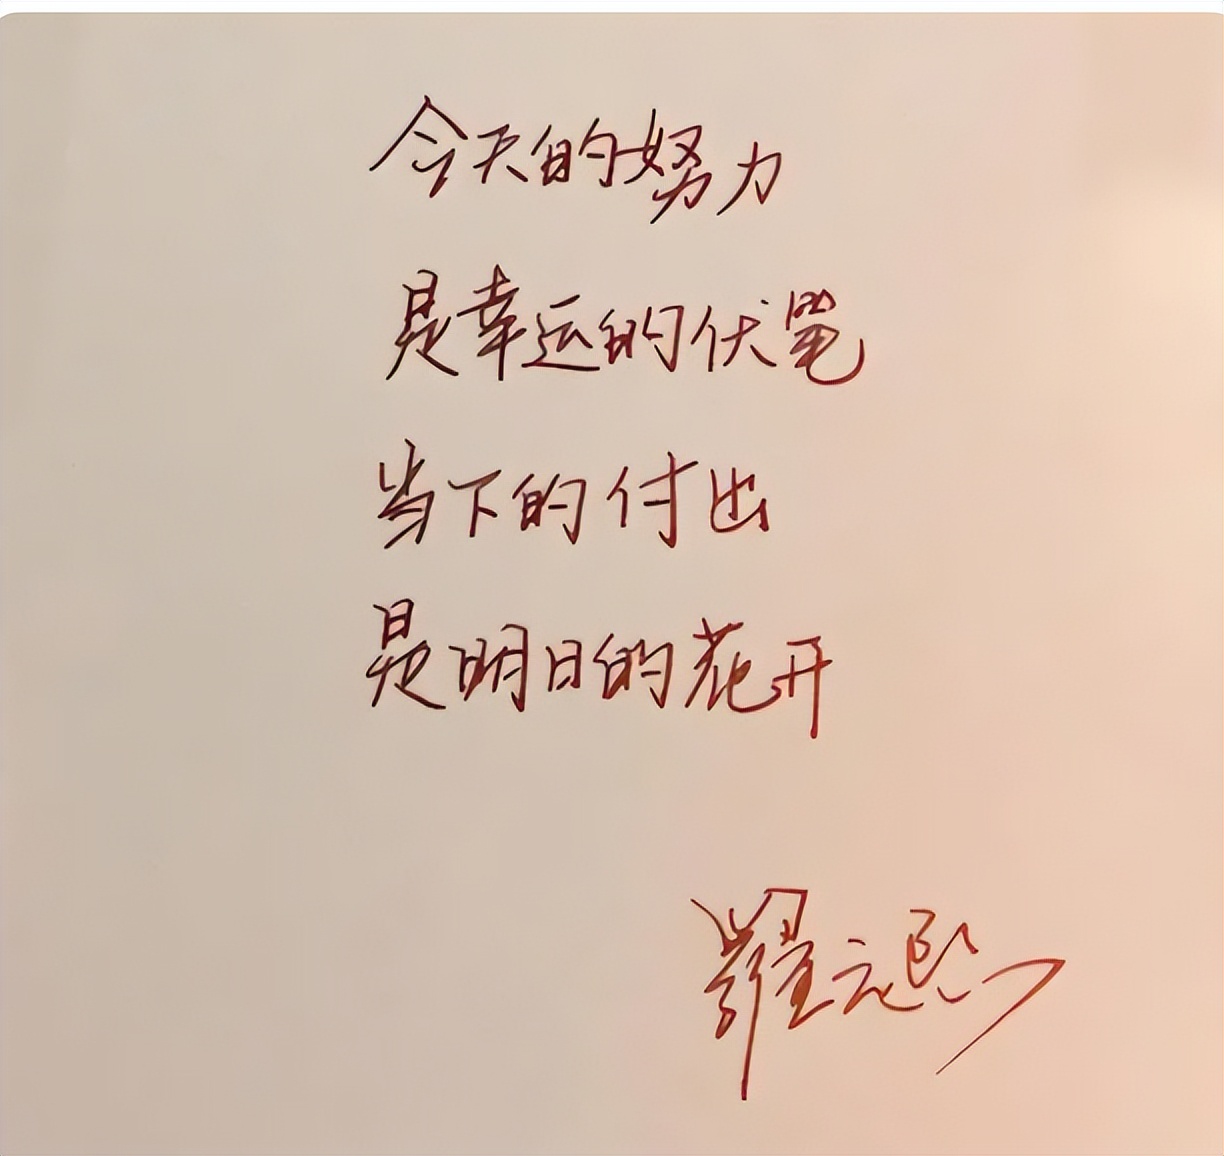 今天的努力
是幸运的伏笔
当下的付出
是明日的花开
罗云熙